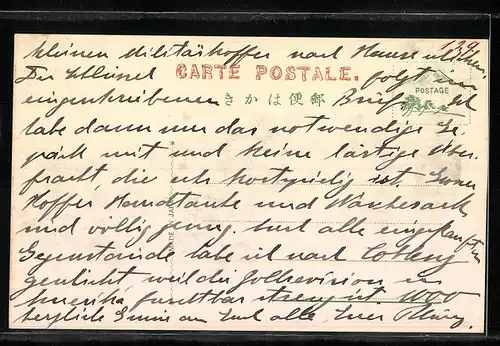 kleinen Militärkoffer nach Hause
129
Der Schlüssel folgt im
CARTE POSTALE.
eingeschriebenen Brief. Ich
きかは便郵
POSTAGE
habe dann nur das notwendige Ge-
päck mit und keine lästige Über-
fracht, die sich kostspielig ist.
Koffer, Handtasche und Wäschesack
MADE IN JAPAN
und völlig genug. Und alle
Gegenstände habe ich nach Coburg
geschickt weil die Zollrevision in
Amerika furchtbar streng ist. 1000
herzliche Grüsse an Euch alle, Euer